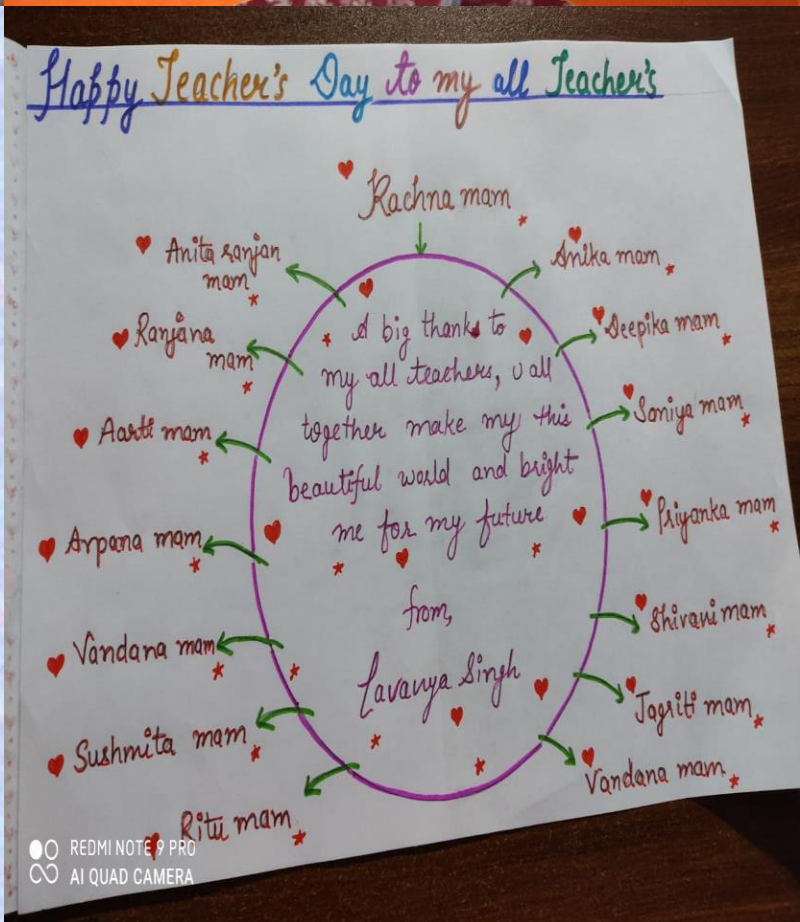 Happy Teacher's Day to my all Teacher's
Rachna mam
Anita ranjan
mam
Ranjana
mam
Aarti mam
Arpana mam
Vandana mam
Sushmita mam
Ritu mam
Anika mam
Deepika mam
Soniya mam
Priyanka mam
Shivani mam
Jagriti mam
Vandana mam
A big thanks to
my all teachers, u all
together make my this
beautiful world and bright
me for my future
from,
Lavanya Singh
REDMI NOTE 9 PRO
AI QUAD CAMERA